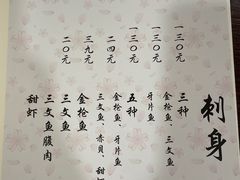 刺身
三种
金枪鱼、三文鱼、
牙片鱼
五种
金枪鱼、牙片鱼、
三文鱼、赤贝、甜虾
金枪鱼
三文鱼
三文鱼腹肉
甜虾
一三〇元
一三〇元
一三〇元
二四〇元
三九元
二〇元